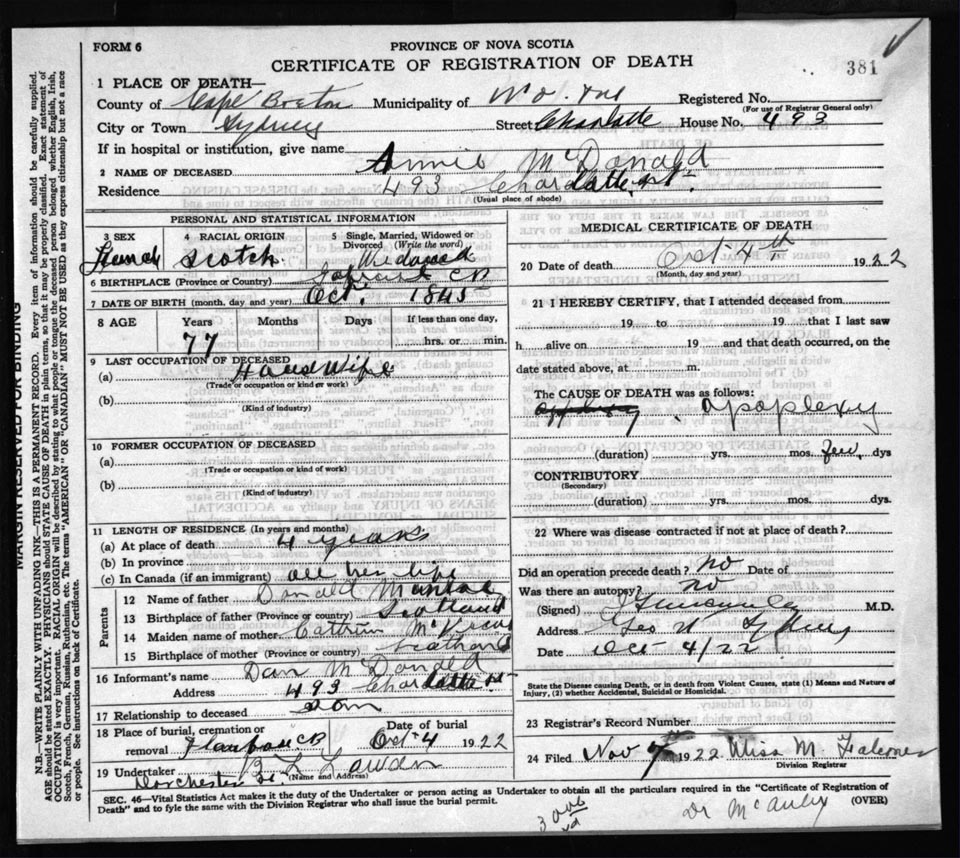 FORM 6
PROVINCE OF NOVA SCOTIA
CERTIFICATE OF REGISTRATION OF DEATH
381
1 PLACE OF DEATH—
County of Cape Breton Municipality of Registered No.
(For use of Registrar General only)
City or Town Sydney Street Charlotte House No. 493
If in hospital or institution, give name
2 NAME OF DECEASED Annie McDonald
Residence 493 Charlotte St.
(Usual place of abode)
PERSONAL AND STATISTICAL INFORMATION
3 SEX 4 RACIAL ORIGIN 5 Single, Married, Widowed or Divorced (Write the word)
Scotch Widowed
6 BIRTHPLACE (Province or Country) CB
7 DATE OF BIRTH (month, day and year) Oct. 1845
8 AGE Years Months Days If less than one day,
77 hrs. or min.
9 LAST OCCUPATION OF DECEASED
(a) House Wife
(Trade or occupation or kind of work)
(b)
(Kind of industry)
10 FORMER OCCUPATION OF DECEASED
(a)
(Trade or occupation or kind of work)
(b)
(Kind of industry)
11 LENGTH OF RESIDENCE (In years and months)
(a) At place of death 4 years
(b) In province
(c) In Canada (if an immigrant) all her life
Parents
12 Name of father Donald
13 Birthplace of father (Province or country) Scotland
14 Maiden name of mother
15 Birthplace of mother (Province or country) Scotland
16 Informant's name Dan McDonald
Address 493 Charlotte St
17 Relationship to deceased Son
18 Place of burial, cremation or removal Date of burial
Oct 4 1922
19 Undertaker B L
(Name and Address)
Dorchester St
MEDICAL CERTIFICATE OF DEATH
20 Date of death Oct 4th 1922
(Month, day and year)
21 I HEREBY CERTIFY, that I attended deceased from
19 to 19 that I last saw
h alive on 19 and that death occurred, on the
date stated above, at m.
The CAUSE OF DEATH was as follows:
apoplexy
(duration) yrs. mos. few dys
CONTRIBUTORY
(Secondary)
(duration) yrs. mos. dys.
22 Where was disease contracted if not at place of death?
Did an operation precede death? no Date of
Was there an autopsy? no
(Signed) M.D.
Address Sydney
Date Oct 4/22
State the Disease causing Death, or in death from Violent Causes, state (1) Means and Nature of
Injury, (2) whether Accidental, Suicidal or Homicidal.
23 Registrar's Record Number
24 Filed Nov 7 1922 Miss M. Falconer
Division Registrar
SEC. 46—Vital Statistics Act makes it the duty of the Undertaker or person acting as Undertaker to obtain all the particulars required in the "Certificate of Registration of
Death" and to fyle the same with the Division Registrar who shall issue the burial permit.
(OVER)
Dr McAuley
MARGIN RESERVED FOR BINDING
N.B.—WRITE PLAINLY WITH UNFADING INK—THIS IS A PERMANENT RECORD. Every item of information should be carefully supplied.
AGE should be stated EXACTLY. PHYSICIANS should STATE CAUSE OF DEATH in plain terms, so that it may be properly classified. Exact statement of
OCCUPATION is very important. RACIAL ORIGIN will be described by stating to what people or tongue the deceased person belonged whether English, Irish,
Scotch, French, German, Russian, Ruthenian, etc. The terms "AMERICAN" OR "CANADIAN" MUST NOT BE USED as they express citizenship but not a race
or people. See instructions on back of Certificate.